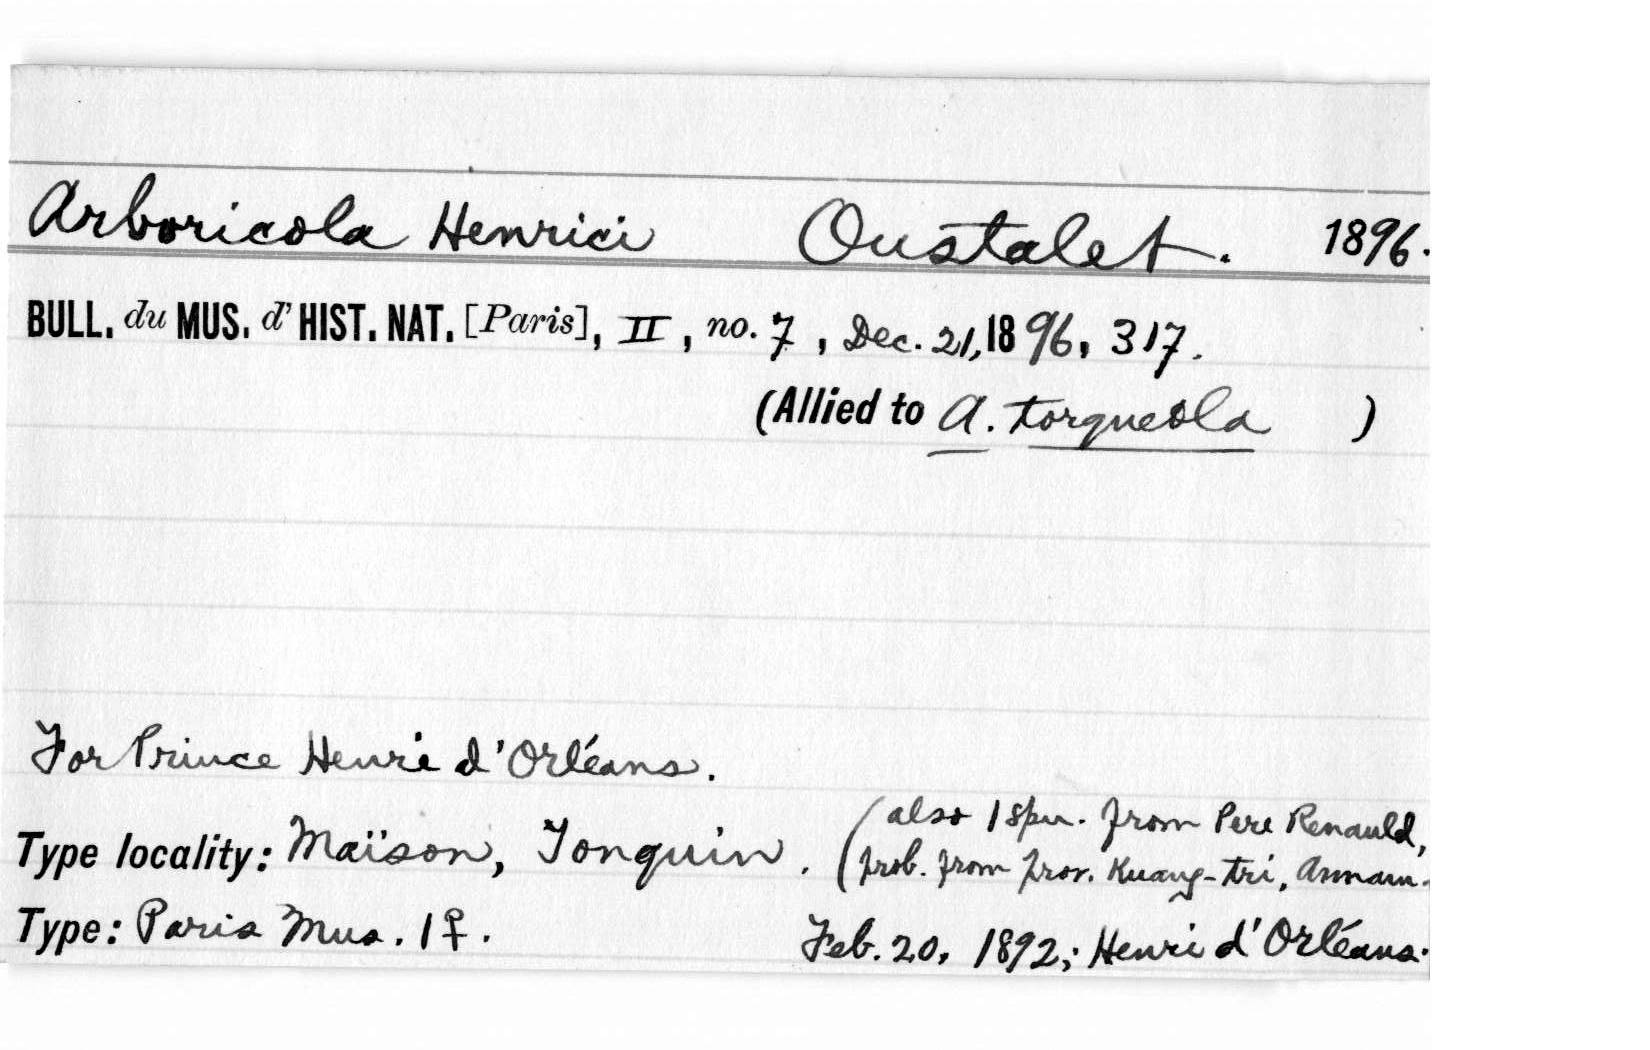 Arboricola Henrici Oustalet. 1896.
BULL. du MUS. d' HIST. NAT. [Paris], II, no. 7, Dec. 21, 1896, 317.
(Allied to A. torqueola )
For Prince Henri d'Orléans.
(also 1 spm. from Pere Renauld,
Type locality: Maïson, Tonquin. (prob. from prov. Kuang-tri, Annam.
Type: Paris Mus. 1♀. Feb. 20, 1892; Henri d'Orléans.